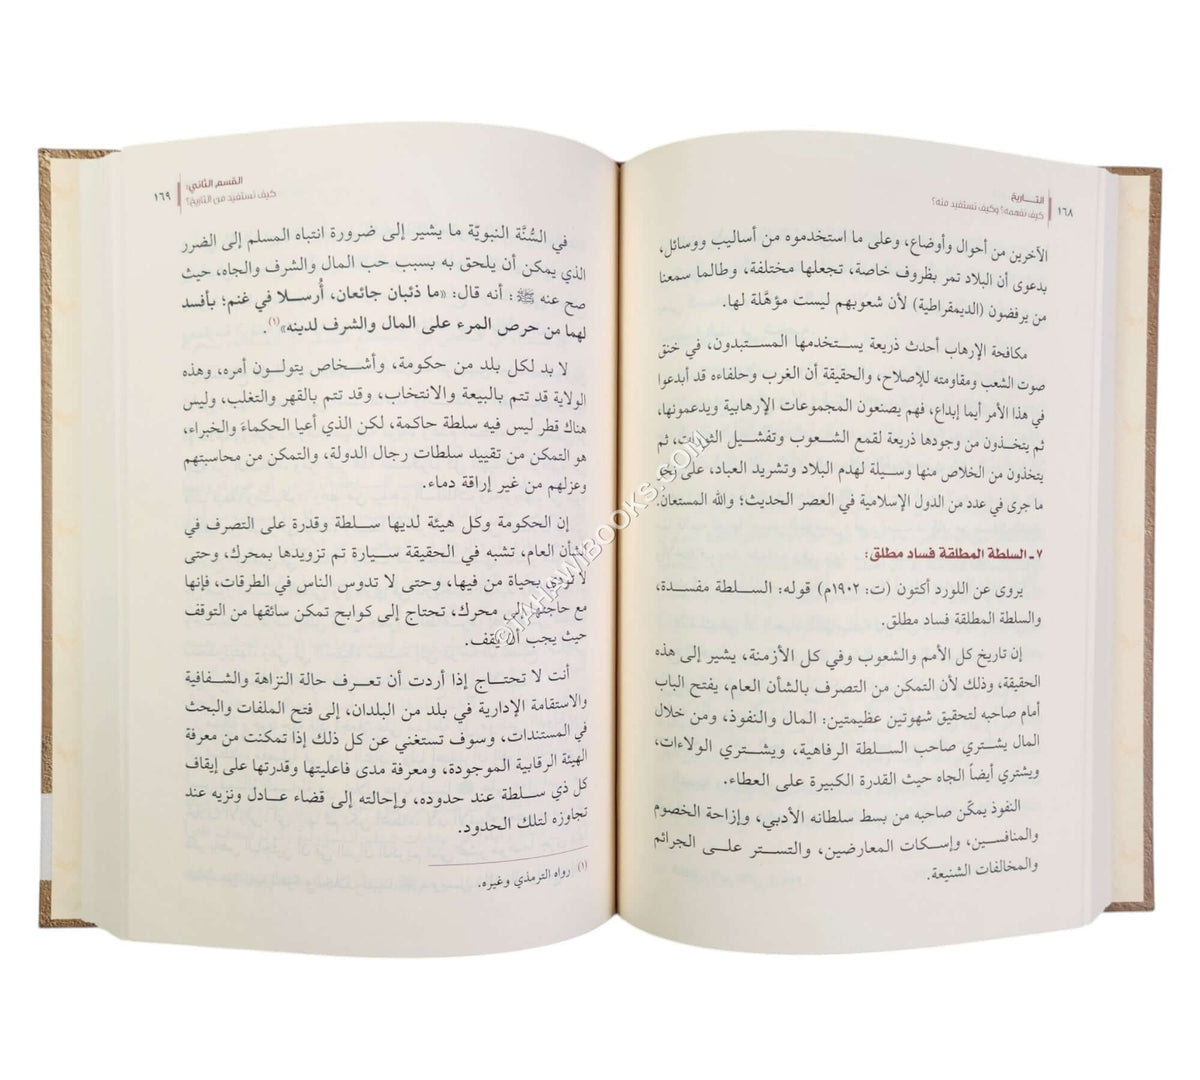 التـــاريخ
كيف نفهمه؟ وكيف نستفيد منه؟
١٦٨
الآخرين من أحوال وأوضاع، وعلى ما استخدموه من أساليب ووسائل،
بدعوى أن البلاد تمر بظروف خاصة، تجعلها مختلفة، وطالما سمعنا
من يرفضون (الديمقراطية) لأن شعوبهم ليست مؤهَّلة لها.
مكافحة الإرهاب أحدث ذريعة يستخدمها المستبدون، في خنق
صوت الشعب ومقاومته للإصلاح، والحقيقة أن الغرب وحلفاءه قد أبدعوا
في هذا الأمر أيما إبداع، فهم يصنعون المجموعات الإرهابية ويدعمونها،
ثم يتخذون من وجودها ذريعة لقمع الشعوب وتفشيل الثورات، ثم
يتخذون من الخلاص منها وسيلة لهدم البلاد وتشريد العباد، على نحو
ما جرى في عدد من الدول الإسلامية في العصر الحديث؛ والله المستعان.
٧ ـ السلطة المطلقة فساد مطلق:
يروى عن اللورد أكتون (ت: ١٩٠٢م) قوله: السلطة مفسدة،
والسلطة المطلقة فساد مطلق.
إن تاريخ كل الأمم والشعوب وفي كل الأزمنة، يشير إلى هذه
الحقيقة، وذلك لأن التمكن من التصرف بالشأن العام، يفتح الباب
أمام صاحبه لتحقيق شهوتين عظيمتين: المال والنفوذ، ومن خلال
المال يشتري صاحب السلطة الرفاهية، ويشتري الولاءات،
ويشتري أيضاً الجاه حيث القدرة الكبيرة على العطاء.
النفوذ يمكّن صاحبه من بسط سلطانه الأدبي، وإزاحة الخصوم
والمنافسين، وإسكات المعارضين، والتستر على الجرائم
والمخالفات الشنيعة.
القسم الثاني:
كيف نستفيد من التاريخ؟
١٦٩
في السُّنَّة النبويّة ما يشير إلى ضرورة انتباه المسلم إلى الضرر
الذي يمكن أن يلحق به بسبب حب المال والشرف والجاه، حيث
صح عنه ﷺ: أنه قال: «ما ذئبان جائعان، أُرسلا في غنم؛ بأفسد
لهما من حرص المرء على المال والشرف لدينه»(١).
لا بد لكل بلد من حكومة، وأشخاص يتولون أمره، وهذه
الولاية قد تتم بالبيعة والانتخاب، وقد تتم بالقهر والتغلب، وليس
هناك قطر ليس فيه سلطة حاكمة، لكن الذي أعيا الحكماءَ والخبراء،
هو التمكن من تقييد سلطات رجال الدولة، والتمكن من محاسبتهم
وعزلهم من غير إراقة دماء.
إن الحكومة وكل هيئة لديها سلطة وقدرة على التصرف في
الشأن العام، تشبه في الحقيقة سيارة تم تزويدها بمحرك، وحتى
لا تودي بحياة من فيها، وحتى لا تدوس الناس في الطرقات، فإنها
مع حاجتها إلى محرك، تحتاج إلى كوابح تمكن سائقها من التوقف
حيث يجب أن يقف.
أنت لا تحتاج إذا أردت أن تعرف حالة النزاهة والشفافية
والاستقامة الإدارية في بلد من البلدان، إلى فتح الملفات والبحث
في المستندات، وسوف تستغني عن كل ذلك إذا تمكنت من معرفة
الهيئة الرقابية الموجودة، ومعرفة مدى فاعليتها وقدرتها على إيقاف
كل ذي سلطة عند حدوده، وإحالته إلى قضاء عادل ونزيه عند
تجاوزه لتلك الحدود.
(١) رواه الترمذي وغيره.
©TAHAWIBOOKS.COM